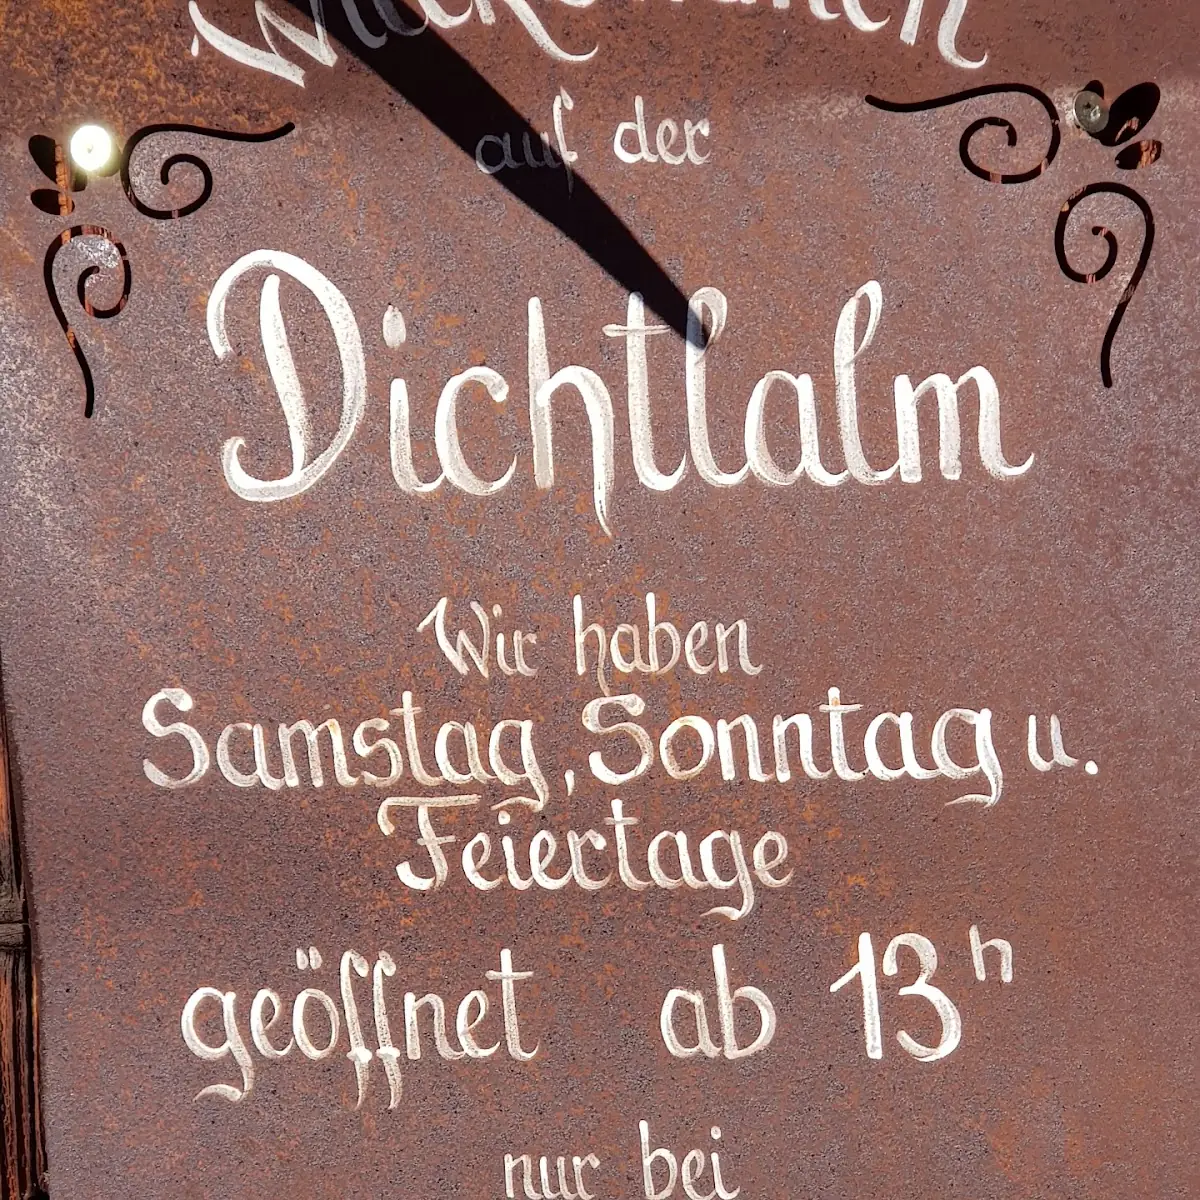 Willkommen
auf der
Dichtlalm
Wir haben
Samstag, Sonntag u.
Feiertage
geöffnet ab 13h
nur bei